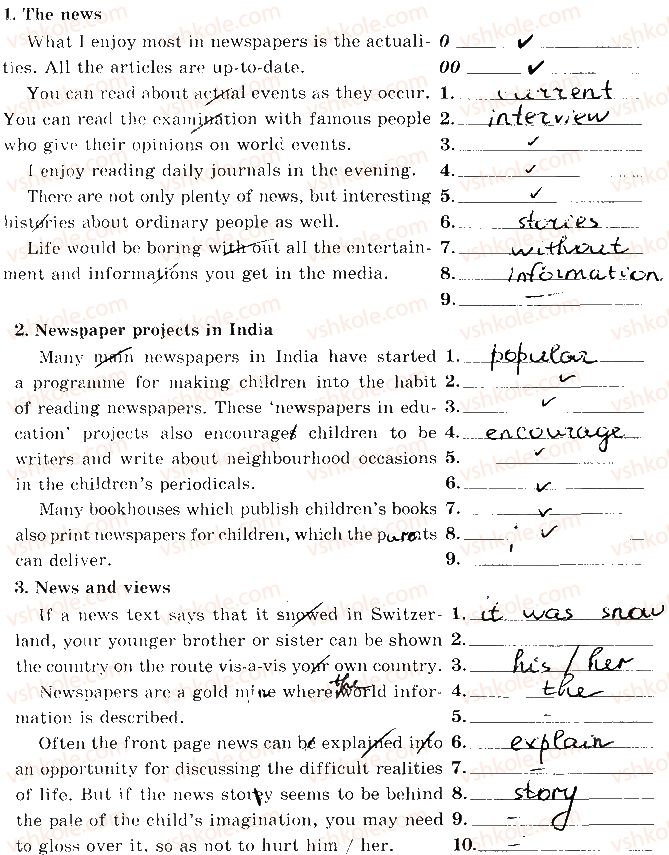 1. The news
What I enjoy most in newspapers is the actuali- 0 ✓
ties. All the articles are up-to-date. 00 ✓
You can read about actual events as they occur. 1. current
You can read the examination with famous people 2. interview
who give their opinions on world events. 3. ✓
I enjoy reading daily journals in the evening. 4. ✓
There are not only plenty of news, but interesting 5. ✓
histories about ordinary people as well. 6. stories
Life would be boring with out all the entertain- 7. without
ment and informations you get in the media. 8. information
9. —
2. Newspaper projects in India
Many main newspapers in India have started 1. popular
a programme for making children into the habit 2. ✓
of reading newspapers. These 'newspapers in edu- 3. ✓
cation' projects also encourages children to be 4. encourage
writers and write about neighbourhood occasions 5. ✓
in the children's periodicals. 6. ✓
Many bookhouses which publish children's books 7. ✓
also print newspapers for children, which the parents 8. ✓
can deliver. 9.
3. News and views
If a news text says that it snowed in Switzer- 1. it was snow
land, your younger brother or sister can be shown 2.
the country on the route vis-a-vis your own country. 3. his / her
Newspapers are a gold mine where the world infor- 4. the
mation is described. 5. -
Often the front page news can be explained into 6. explain
an opportunity for discussing the difficult realities 7. —
of life. But if the news story seems to be behind 8. story
the pale of the child's imagination, you may need 9. —
to gloss over it, so as not to hurt him / her. 10. —
vshkole.com